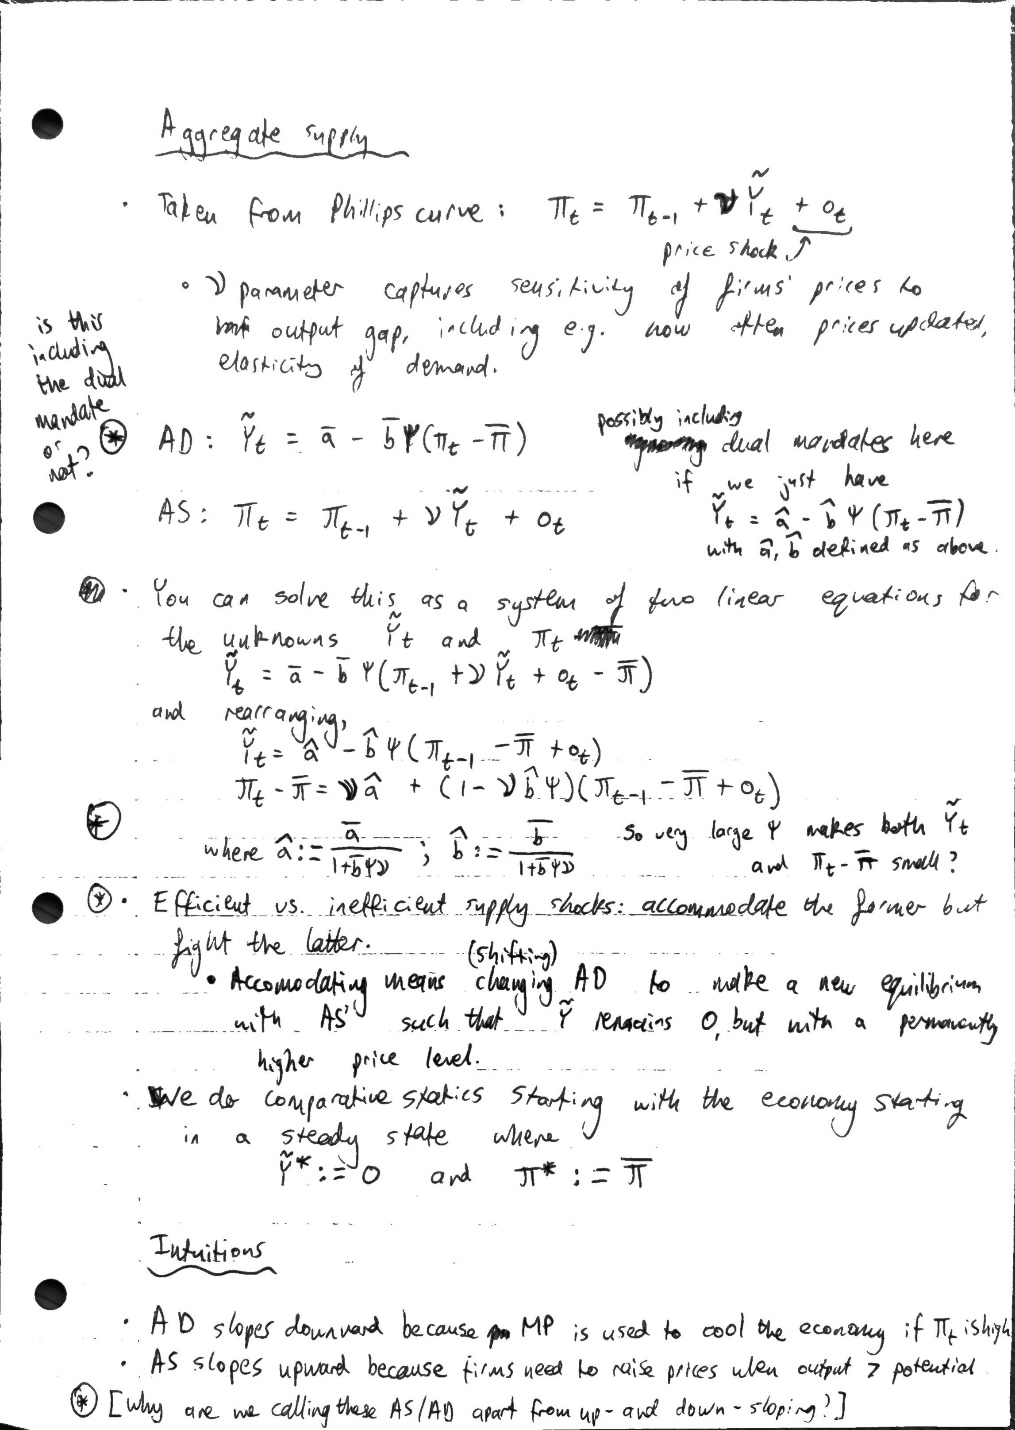 Aggregate supply
· Taken from Phillips curve: π_t = π_{t-1} + ν Ỹ_t + o_t
price shock ↗
∘ ν parameter captures sensitivity of firms' prices to
output gap, including e.g. how often prices updated,
elasticity of demand.
is this
including
the dual
mandate
or
not?
⊛ AD: Ỹ_t = ā - b̄Ψ(π_t - π̄)
possibly including
dual mandates here
if we just have
Ỹ_t = â - b̂ Ψ (π_t - π̄)
with â, b̂ defined as above.
AS: π_t = π_{t-1} + ν Ỹ_t + o_t
· You can solve this as a system of two linear equations for
the unknowns Ỹ_t and π_t
Ỹ_t = ā - b̄ Ψ(π_{t-1} + ν Ỹ_t + o_t - π̄)
and rearranging,
Ỹ_t = â - b̂ Ψ (π_{t-1} - π̄ + o_t)
π_t - π̄ = ν â + (1 - ν b̂ Ψ)(π_{t-1} - π̄ + o_t)
⊛ where â := ā/(1+b̄Ψν) ; b̂ := b̄/(1+b̄Ψν)
So very large Ψ makes both Ỹ_t
and π_t - π̄ small?
⊛ · Efficient vs. inefficient supply shocks: accommodate the former but
fight the latter.
(shifting)
• Accomodating means changing AD to make a new equilibrium
with AS' such that Ỹ remains 0, but with a permanently
higher price level.
· We do comparative statics starting with the economy starting
in a steady state where
Ỹ* := 0 and π* := π̄
Intuitions
· AD slopes downward because MP is used to cool the economy if π_t is high
· AS slopes upward because firms need to raise prices when output > potential
⊛ [Why are we calling these AS/AD apart from up- and down-sloping?]